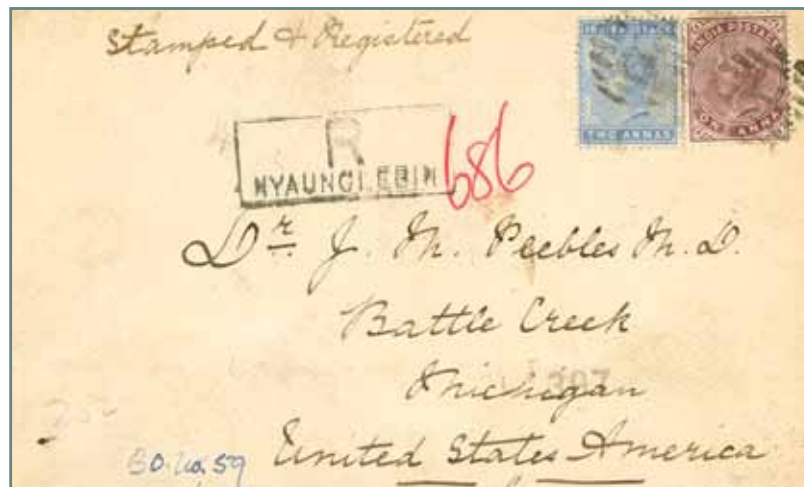 Stamped & Registered
TWO ANNAS
INDIA POSTAGE
ONE ANNA
R
NYAUNGLEBIN
686
Dr J. M. Peebles M. D.
Battle Creek
Michigan
397
United States America